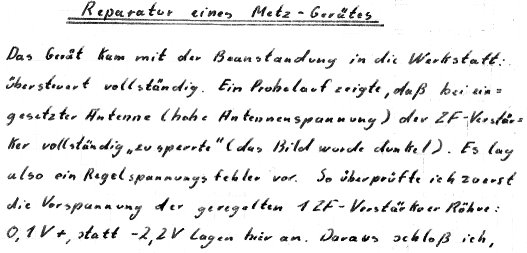 Reparatur eines Metz-Gerätes
Das Gerät kam mit der Beanstandung in die Werkstatt:
übersteuert vollständig. Ein Probelauf zeigte, daß bei ein=
gesetzter Antenne (hohe Antennenspannung) der ZF-Verstär=
ker vollständig "zusperrte" (das Bild wurde dunkel). Es lag
also ein Regelspannungsfehler vor. So überprüfte ich zuerst
die Vorspannung der geregelten 1 ZF-Verstärker Röhre:
0,1V+, statt -2,2V lagen hier an. Daraus schloß ich,